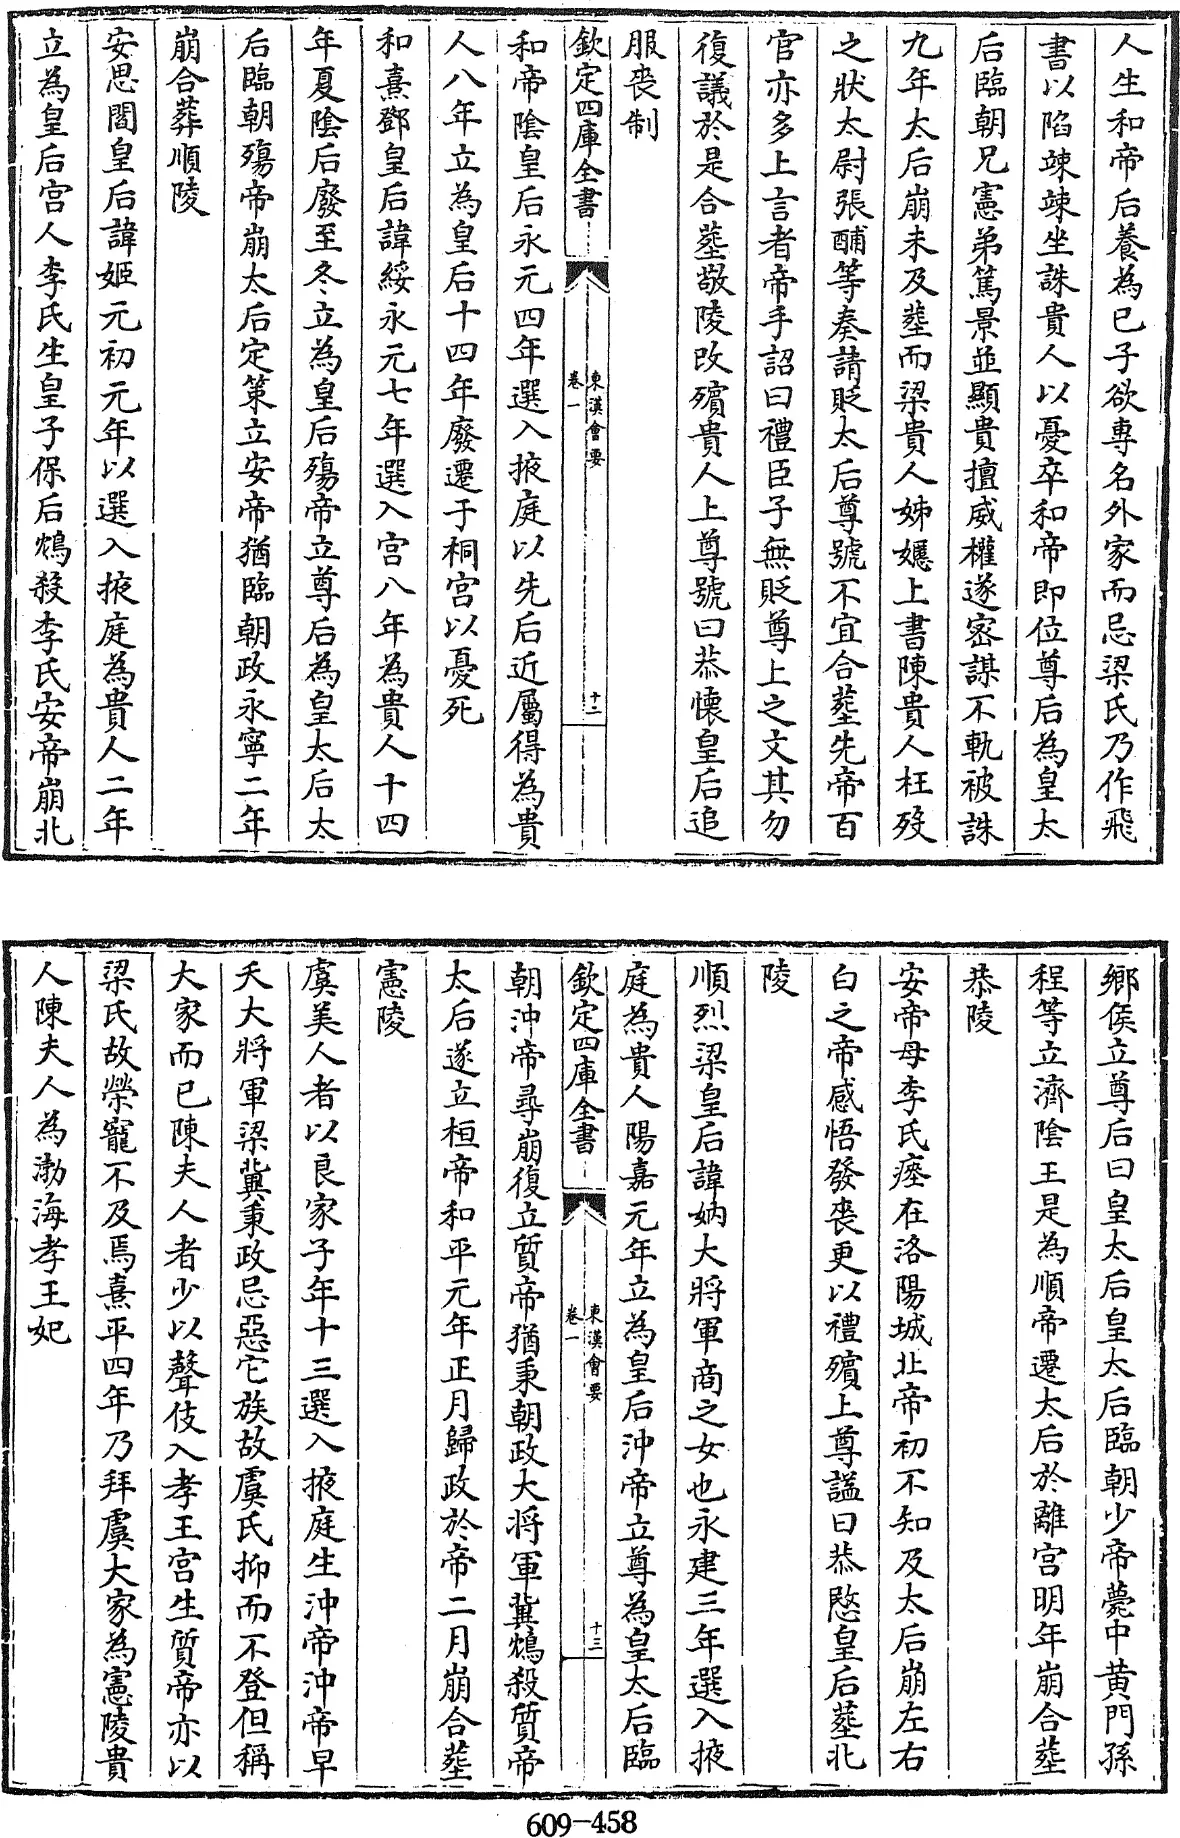 人生和帝后養為已子欲專名外家而忌梁氏乃作飛
書以陷竦竦坐誅貴人以憂卒和帝即位尊后為皇太
后臨朝兄憲弟篤景並顯貴擅威權遂密謀不軌被誅
九年太后崩未及塟而梁貴人姊嫕上書陳貴人枉歿
之狀太尉張酺等奏請貶太后尊號不宜合塟先帝百
官亦多上言者帝手詔曰禮臣子無貶尊上之文其勿
復議於是合塟敬陵改殯貴人上尊號曰恭懷皇后追
服喪制
欽定四庫全書
東漢會要
卷一
十二
和帝陰皇后永元四年選入掖庭以先后近屬得為貴
人八年立為皇后十四年廢遷于桐宮以憂死
和熹鄧皇后諱綏永元七年選入宮八年為貴人十四
年夏陰后廢至冬立為皇后殤帝立尊后為皇太后太
后臨朝殤帝崩太后定策立安帝猶臨朝政永寧二年
崩合葬順陵
安思閻皇后諱姬元初元年以選入掖庭為貴人二年
立為皇后宮人李氏生皇子保后鴆殺李氏安帝崩北
鄉侯立尊后曰皇太后皇太后臨朝少帝薨中黃門孫
程等立濟陰王是為順帝遷太后於離宮明年崩合塟
恭陵
安帝母李氏瘞在洛陽城北帝初不知及太后崩左右
白之帝感悟發喪更以禮殯上尊諡曰恭愍皇后塟北
陵
順烈梁皇后諱妠大將軍商之女也永建三年選入掖
庭為貴人陽嘉元年立為皇后沖帝立尊為皇太后臨
欽定四庫全書
東漢會要
卷一
十三
朝沖帝尋崩復立質帝猶秉朝政大將軍冀鴆殺質帝
太后遂立桓帝和平元年正月歸政於帝二月崩合塟
憲陵
虞美人者以良家子年十三選入掖庭生沖帝沖帝早
夭大將軍梁冀秉政忌惡它族故虞氏抑而不登但稱
大家而已陳夫人者少以聲伎入孝王宮生質帝亦以
梁氏故榮寵不及焉熹平四年乃拜虞大家為憲陵貴
人陳夫人為渤海孝王妃
609-458